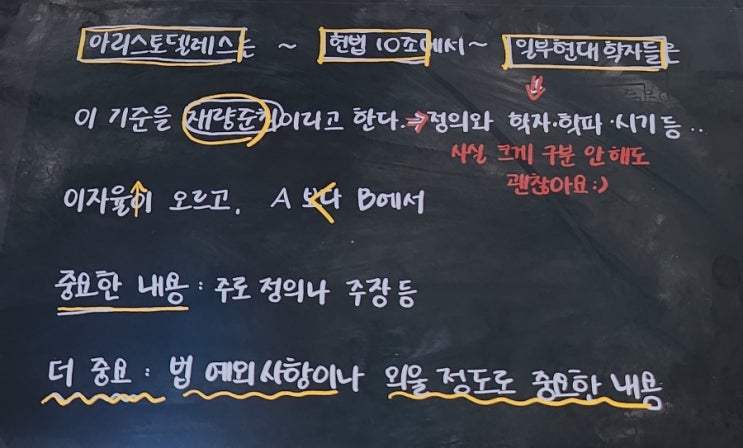 아리스토텔레스는 ~ 헌법 10조에서~ 일부현대 학자들은
이 기준을 재량준칙이라고 한다. → 정의와 학자·학파·시기 등..
사실 크게 구분 안 해도
괜찮아요:)
이자율이↑ 오르고, A 보다 < B에서
중요한 내용 : 주로 정의나 주장 등
더 중요 : 법 예외사항이나 외울 정도로 중요한 내용